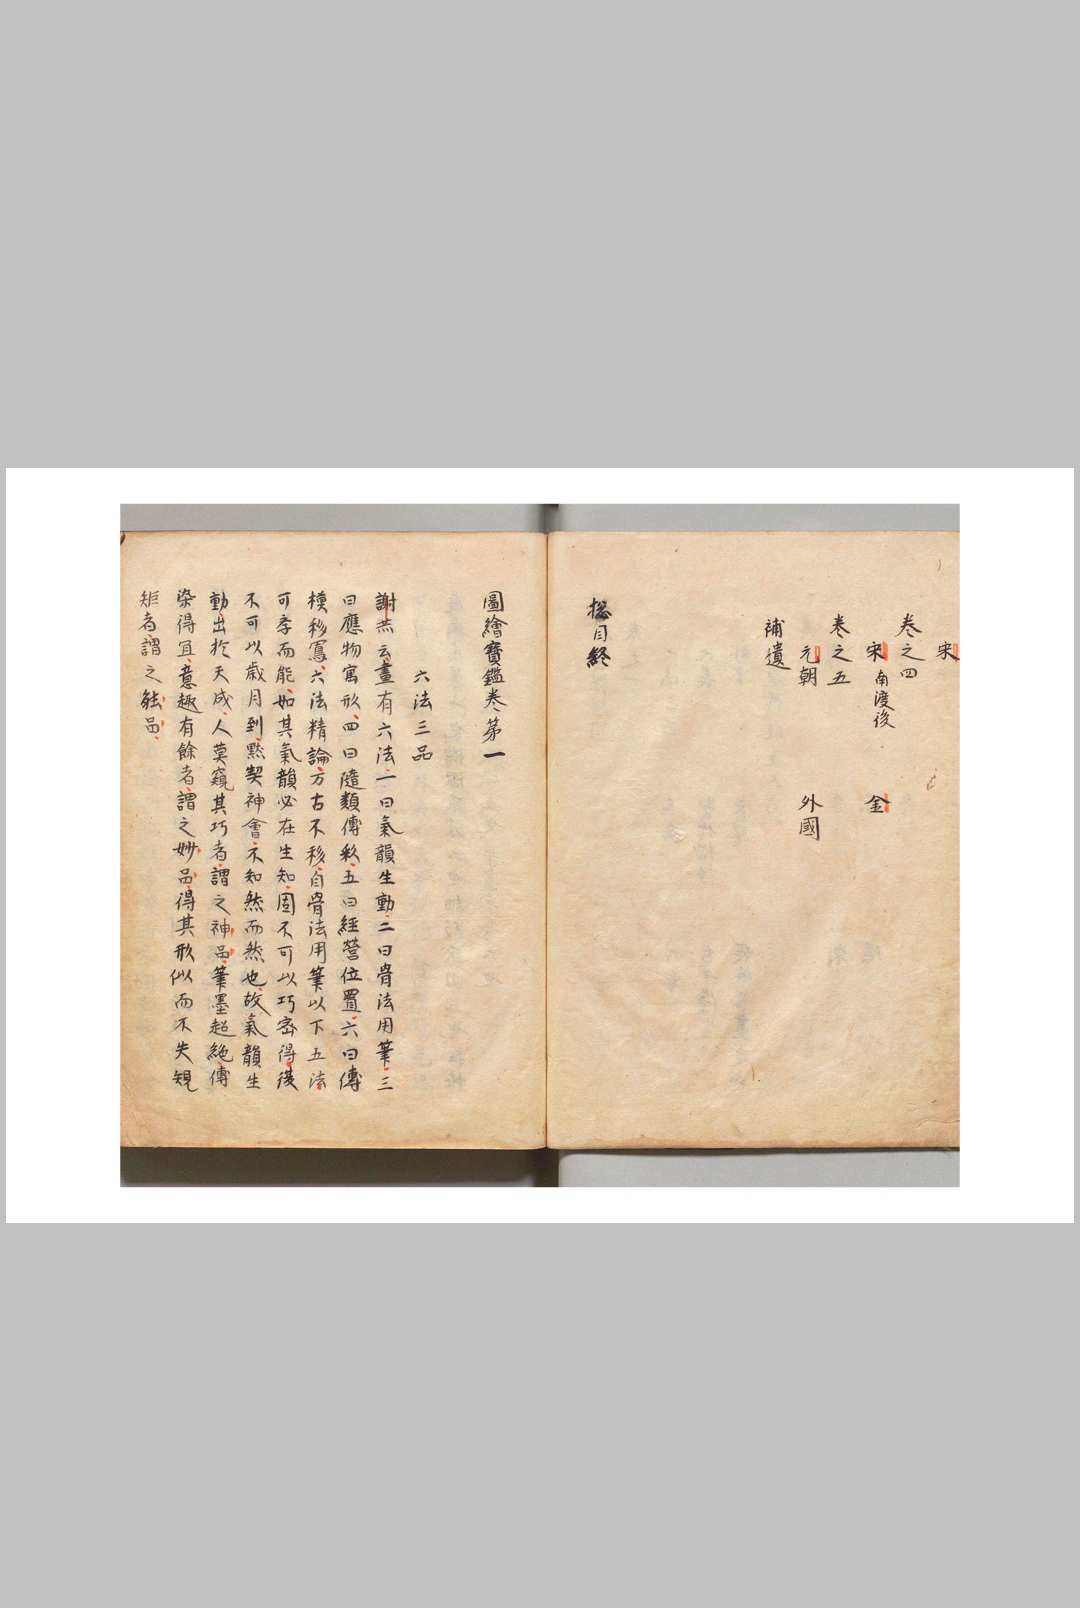 宋
卷之四
宋 南渡後 金
卷之五
元朝 外國
補遺
捴目終
圖繪寶鑑卷第一
六法三品
謝赫云畫有六法一曰氣韻生動二曰骨法用筆三
曰應物寓形四曰隨類傳彩五曰經營位置六曰傳
模移寫六法精論万古不移自骨法用筆以下五法
可孝而能如其氣韻必在生知固不可以巧密得復
不可以歲月到黙契神會不知然而然也故氣韻生
動出於天成人莫窺其巧者謂之神品筆墨超絶傳
染得宜意趣有餘者謂之妙品得其形似而不失規
矩者謂之能品